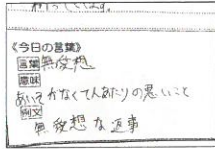 《今日の言葉》
言葉 無愛想
意味
あいそがなくて人あたりの悪いこと
例文
無愛想な返事